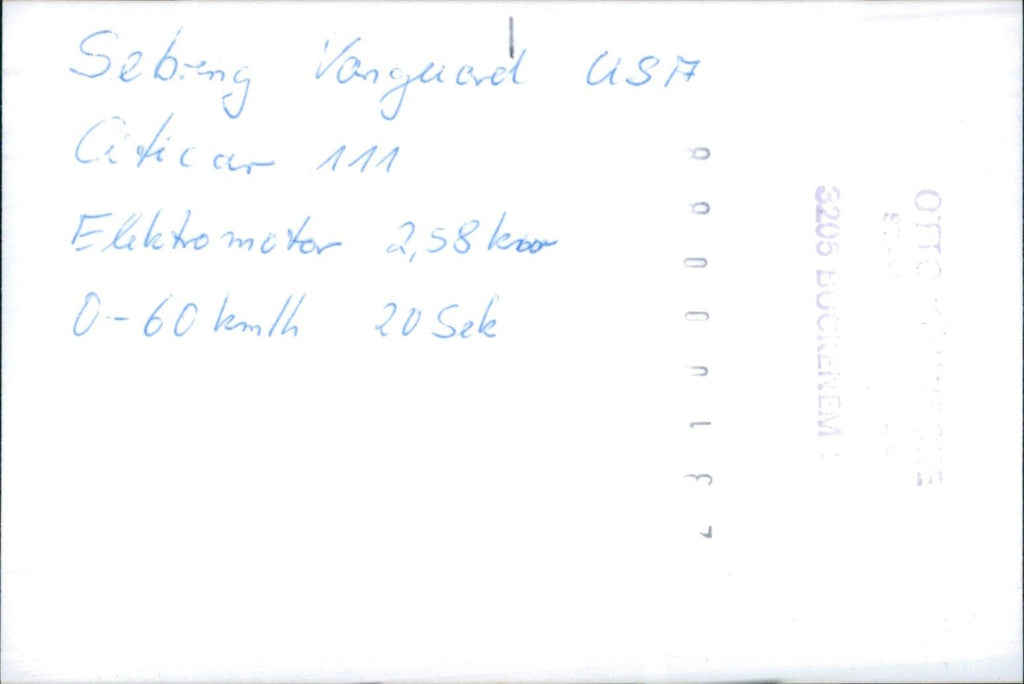 Sebring Vanguard USA
Citicar 111
Elektromotor 2,58 kw
0-60 km/h 20 Sek
OTTO
3205 BOCKENEM